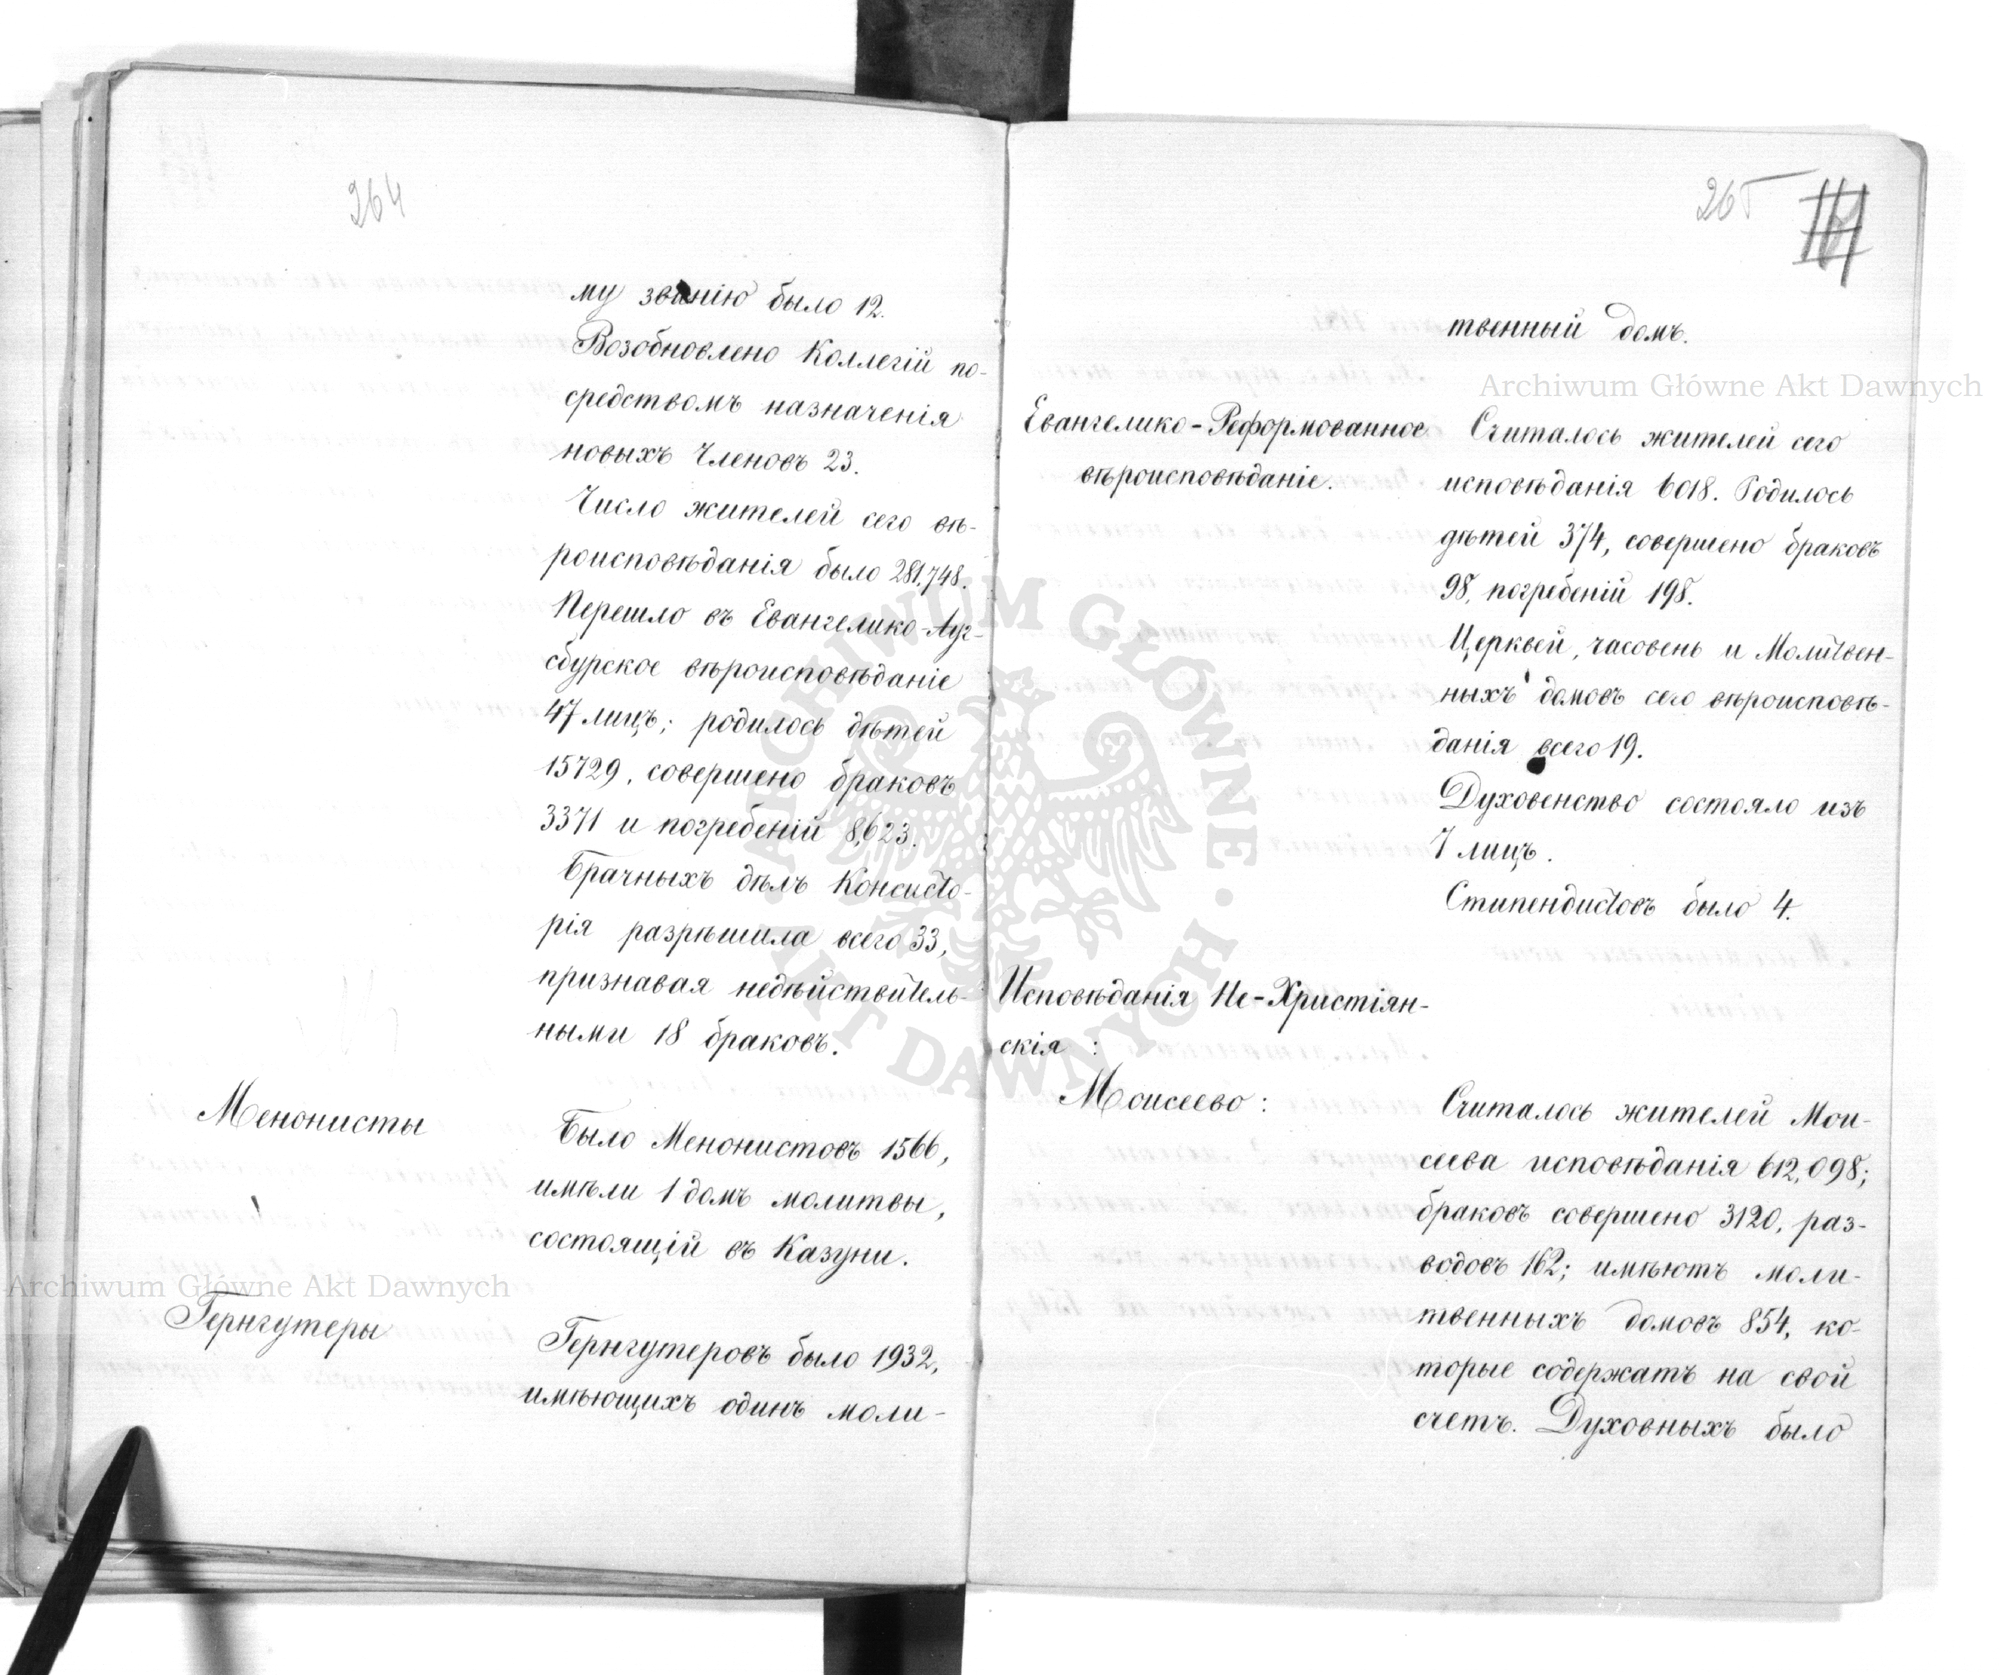 264
му званію было 12.
Возобновлено Коллегій по-
средствомъ назначенія
новыхъ Членовъ 23.
Число жителей сего вѣ-
роисповѣданія было 281,748.
Перешло въ Евангелико-Ауг-
сбурское вѣроисповѣданіе
47 лицъ; родилось дѣтей
15729, совершено браковъ
3371 и погребеній 8,623.
Брачныхъ дѣлъ Консисто-
рія разрѣшила всего 33,
признавая недѣйствитель-
ными 18 браковъ.
Менонисты
Было Менонистовъ 1566,
имѣли 1 домъ молитвы,
состоящій въ Казуни.
Гернгутеры
Гернгутеровъ было 1932,
имѣющихъ одинъ моли-
265
твенный домъ.
Евангелико-Реформованное
вѣроисповѣданіе.
Считалось жителей сего
исповѣданія 6018. Родилось
дѣтей 374, совершено браковъ
98, погребеній 198.
Церквей, часовень и Молитвен-
ныхъ домовъ сего вѣроисповѣ-
данія всего 19.
Духовенство состояло изъ
7 лицъ.
Стипендистовъ было 4.
Исповѣданія Не-Христіян-
скія:
Моисеево:
Считалось жителей Мои-
сеева исповѣданія 612,098;
браковъ совершено 3120, раз-
водовъ 162; имѣютъ моли-
твенныхъ домовъ 854, ко-
торые содержатъ на свой
счетъ. Духовныхъ было
Archiwum Główne Akt Dawnych
Archiwum Główne Akt Dawnych
ARCHIWUM GŁÓWNE · AKT DAWNYCH ·